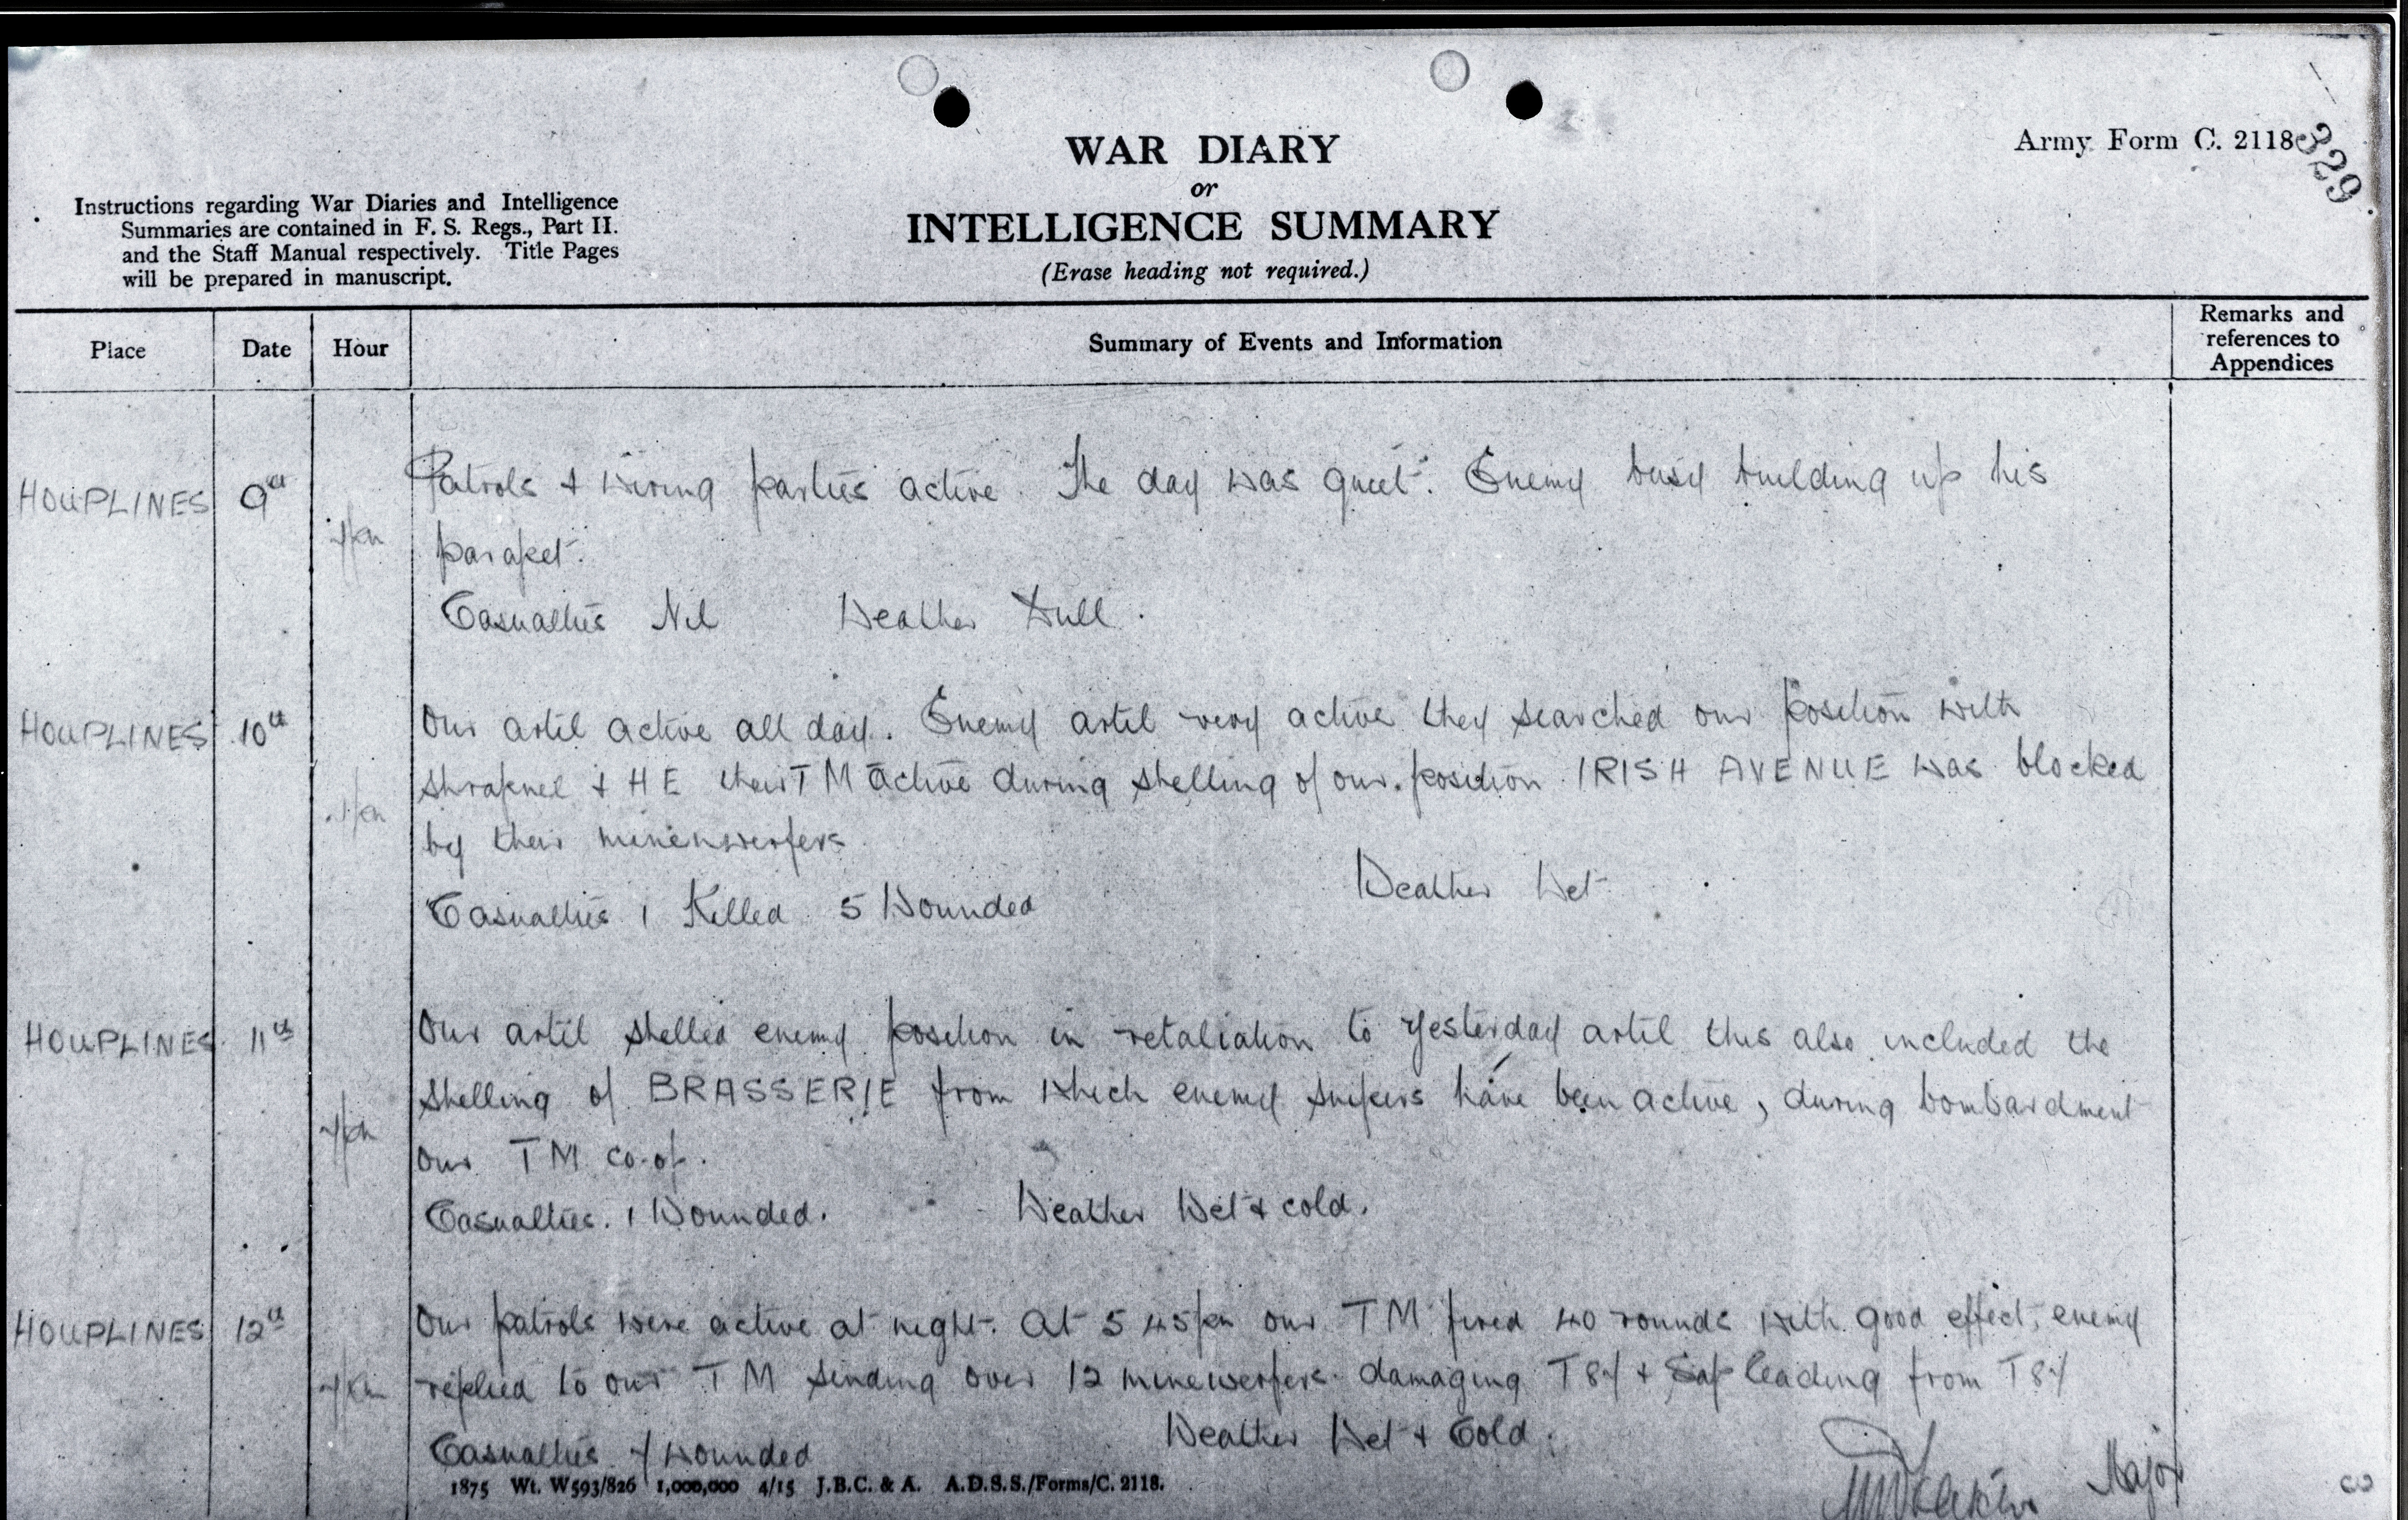 Army Form C. 2118
329
WAR DIARY
or
INTELLIGENCE SUMMARY
(Erase heading not required.)
Instructions regarding War Diaries and Intelligence
Summaries are contained in F. S. Regs., Part II.
and the Staff Manual respectively. Title Pages
will be prepared in manuscript.
Place Date Hour Summary of Events and Information Remarks and
references to
Appendices
HOUPLINES 9th Patrols & wiring parties active. The day was quiet. Enemy busy building up his
parapet.
Casualties Nil Weather Dull.
HOUPLINES 10th Our artil active all day. Enemy artil very active they searched our position with
shrapnel & HE their TM active during shelling of our position IRISH AVENUE was blocked
by their minenwerfers
Casualties 1 Killed 5 Wounded Weather Wet
HOUPLINES 11th Our artil shelled enemy position in retaliation to yesterday artil this also included the
shelling of BRASSERIE from which enemy snipers have been active, during bombardment
our TM co-op.
Casualties. 1 Wounded. Weather Wet & cold.
HOUPLINES 12th Our patrols were active at night. At 5 45pm our TM fired 40 rounds with good effect, enemy
replied to our TM sending over 12 minewerfers damaging & Sap leading from
Casualties wounded Weather Wet & Cold.
1875 Wt. W593/826 1,000,000 4/15 J.B.C. & A. A.D.S.S./Forms/C. 2118.
Major